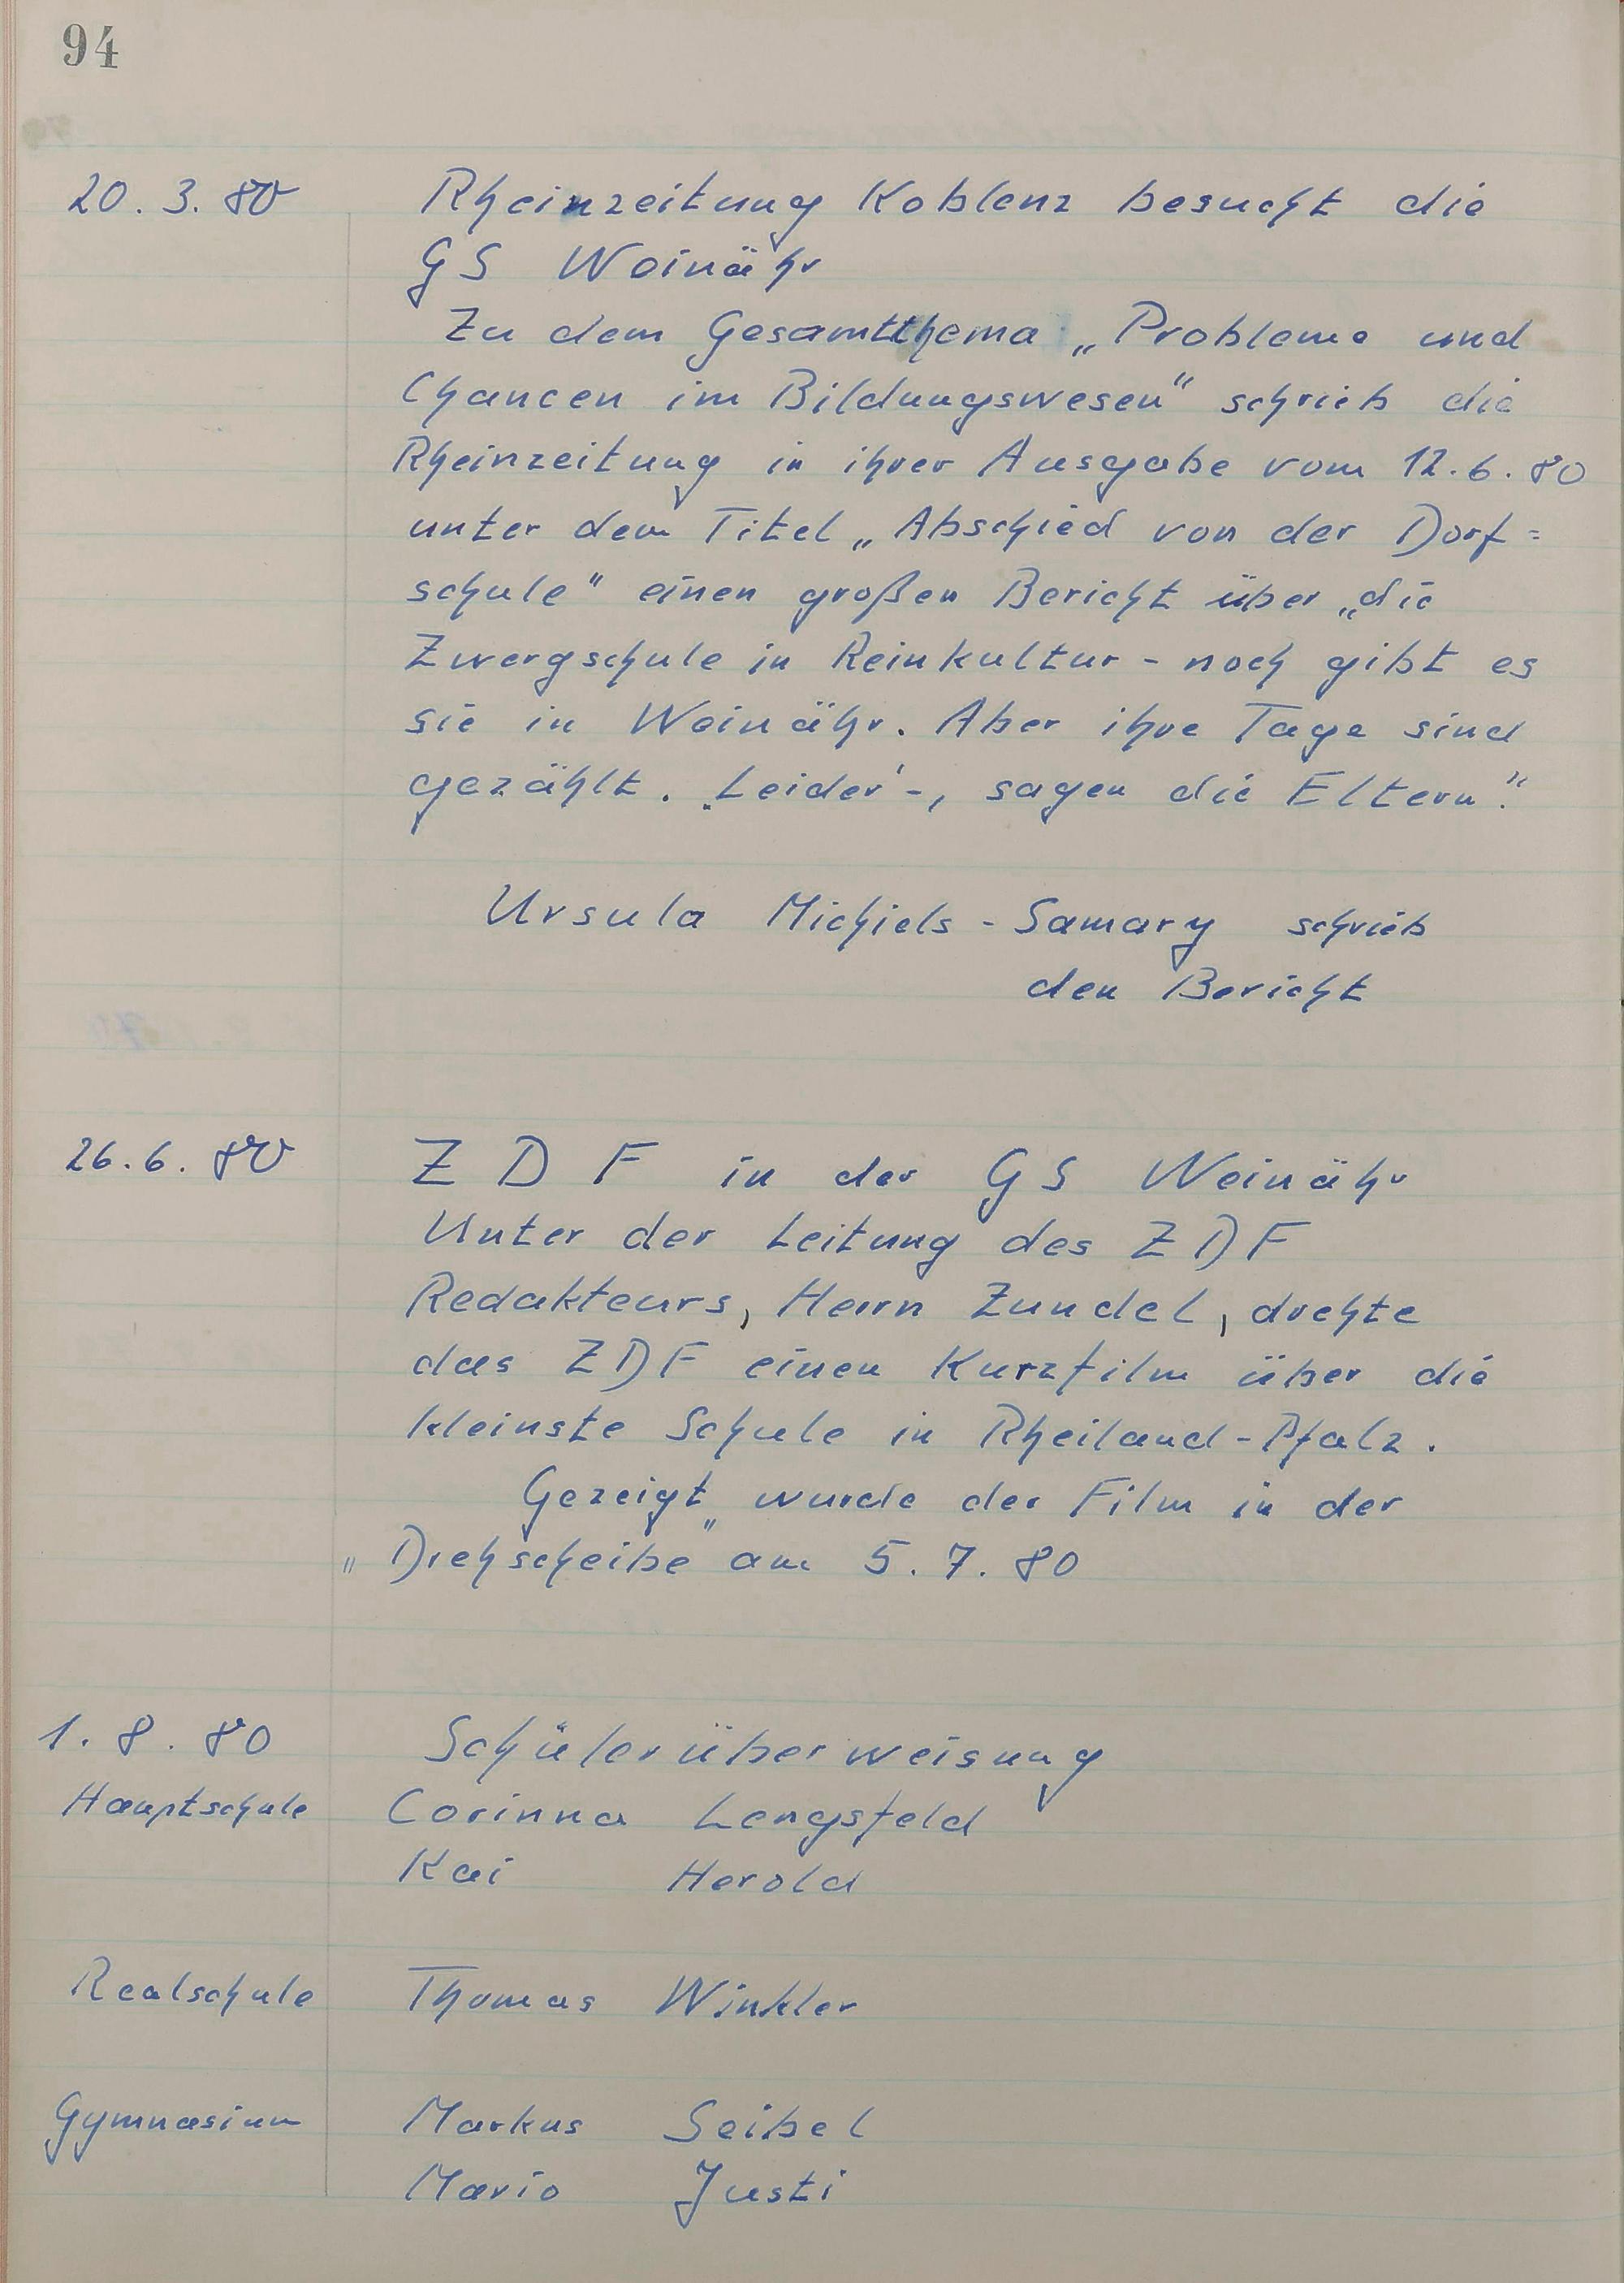 94
20. 3. 80 Rheinzeitung Koblenz besucht die
GS Weinähr
Zu dem Gesamtthema „Probleme und
Chancen im Bildungswesen" schrieb die
Rheinzeitung in ihrer Ausgabe vom 12.6.80
unter dem Titel „Abschied von der Dorf=
schule" einen großen Bericht über „die
Zwergschule in Reinkultur - noch gibt es
sie in Weinähr. Aber ihre Tage sind
gezählt. ‚Leider' -, sagen die Eltern."
Ursula Michiels - Samary schrieb
den Bericht
26.6. 80 Z D F in der GS Weinähr
Unter der Leitung des ZDF
Redakteurs, Herrn Zundel, drehte
das ZDF einen Kurzfilm über die
kleinste Schule in Rheiland-Pfalz.
Gezeigt wurde der Film in der
„Drehscheibe" am 5.7.80
1. 8. 80 Schülerüberweisung
Hauptschule Corinna Lengsfeld
Kai Herold
Realschule Thomas Winkler
Gymnasium Markus Seibel
Mario Justi